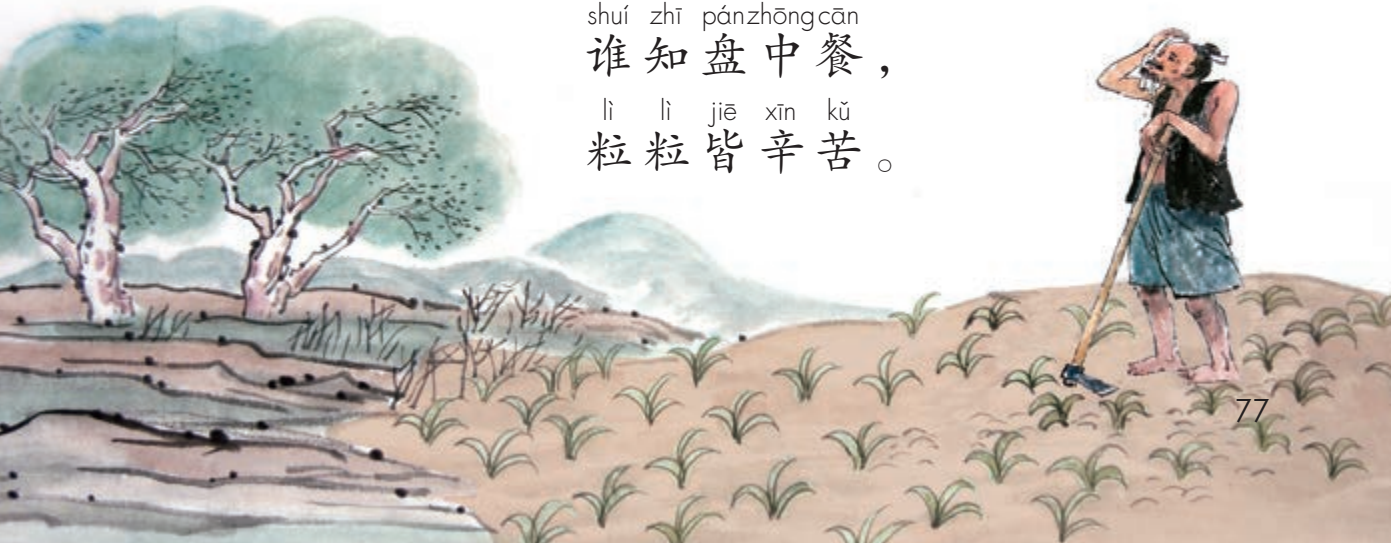 shuí zhī pán zhōng cān
谁知盘中餐，
lì lì jiē xīn kǔ
粒粒皆辛苦。
77